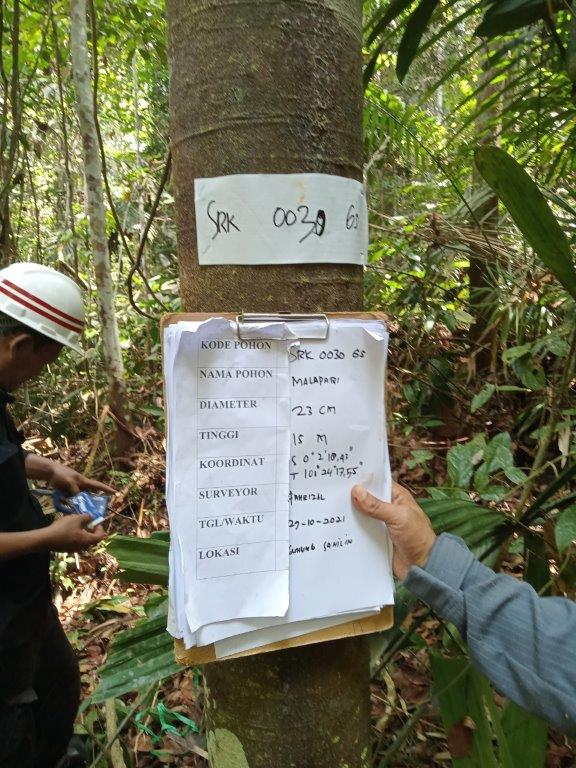 SRK 0030 GS
KODE POHON SRK 0030 GS
NAMA POHON MALAPARI
DIAMETER 23 CM
TINGGI 15 M
KOORDINAT S 0° 2' 18,43"
T 101° 24' 17,55"
SURVEYOR FAHRIZAL
TGL/WAKTU 29-10-2021
LOKASI GUNUNG SAHILIN